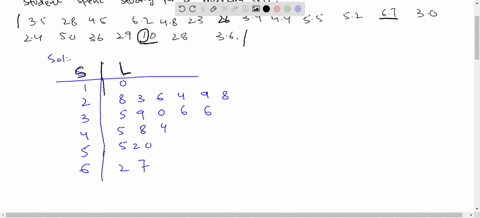 student spent studying
3.5 2.8 4.5 6.2 4.8 2.3 26 3.9 4.4 5.5 5.2 6.7 3.0
2.4 5.0 3.6 2.9 1.0 2.8 3.6.
Sol:-
S L
1 0
2 8 3 6 4 9 8
3 5 9 0 6 6
4 5 8 4
5 5 2 0
6 2 7